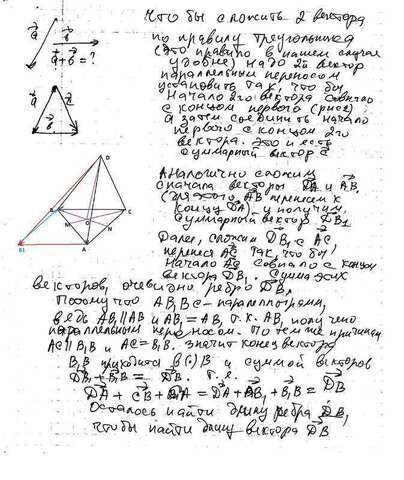 Что бы сложить 2 вектора
по правилу треугольника
(это правило в нашем случае
удобне) надо 2й вектор
параллельным переносом
установить так, что бы
начало 2го вектора совпало
с концом первого (рис.)
а затем соединить начало
первого с концом 2го
вектора. Это и есть
суммарный вектор c
a
b
a+b=?
a
c
b
Аналогично сложим
сначала векторы DA и AB,
(для этого AB перенесем к
концу DA) и получим
суммарный вектор DB1
Далее, сложим DB1 с AC,
перенеся AC так, что бы
начало AC совпало с концом
вектора DB1. Сумма этих
D
B
C
M
O
N
B1
A
векторов, очевидно ребро DB,
Потому что AB1BC - параллелограмм,
ведь AB1||AB и AB1=AB, т.к. AB1 получено
параллельным переносом. По тем же причинам
AC||B1B и AC=B1B. значит конец вектора
B1B приходится в (·)B и суммой векторов
DB1+B1B = DB. т.е.
DA + CB + BA = DA+AB1+B1B = DB
Осталось найти длину ребра DB,
чтобы найти длину вектора DB